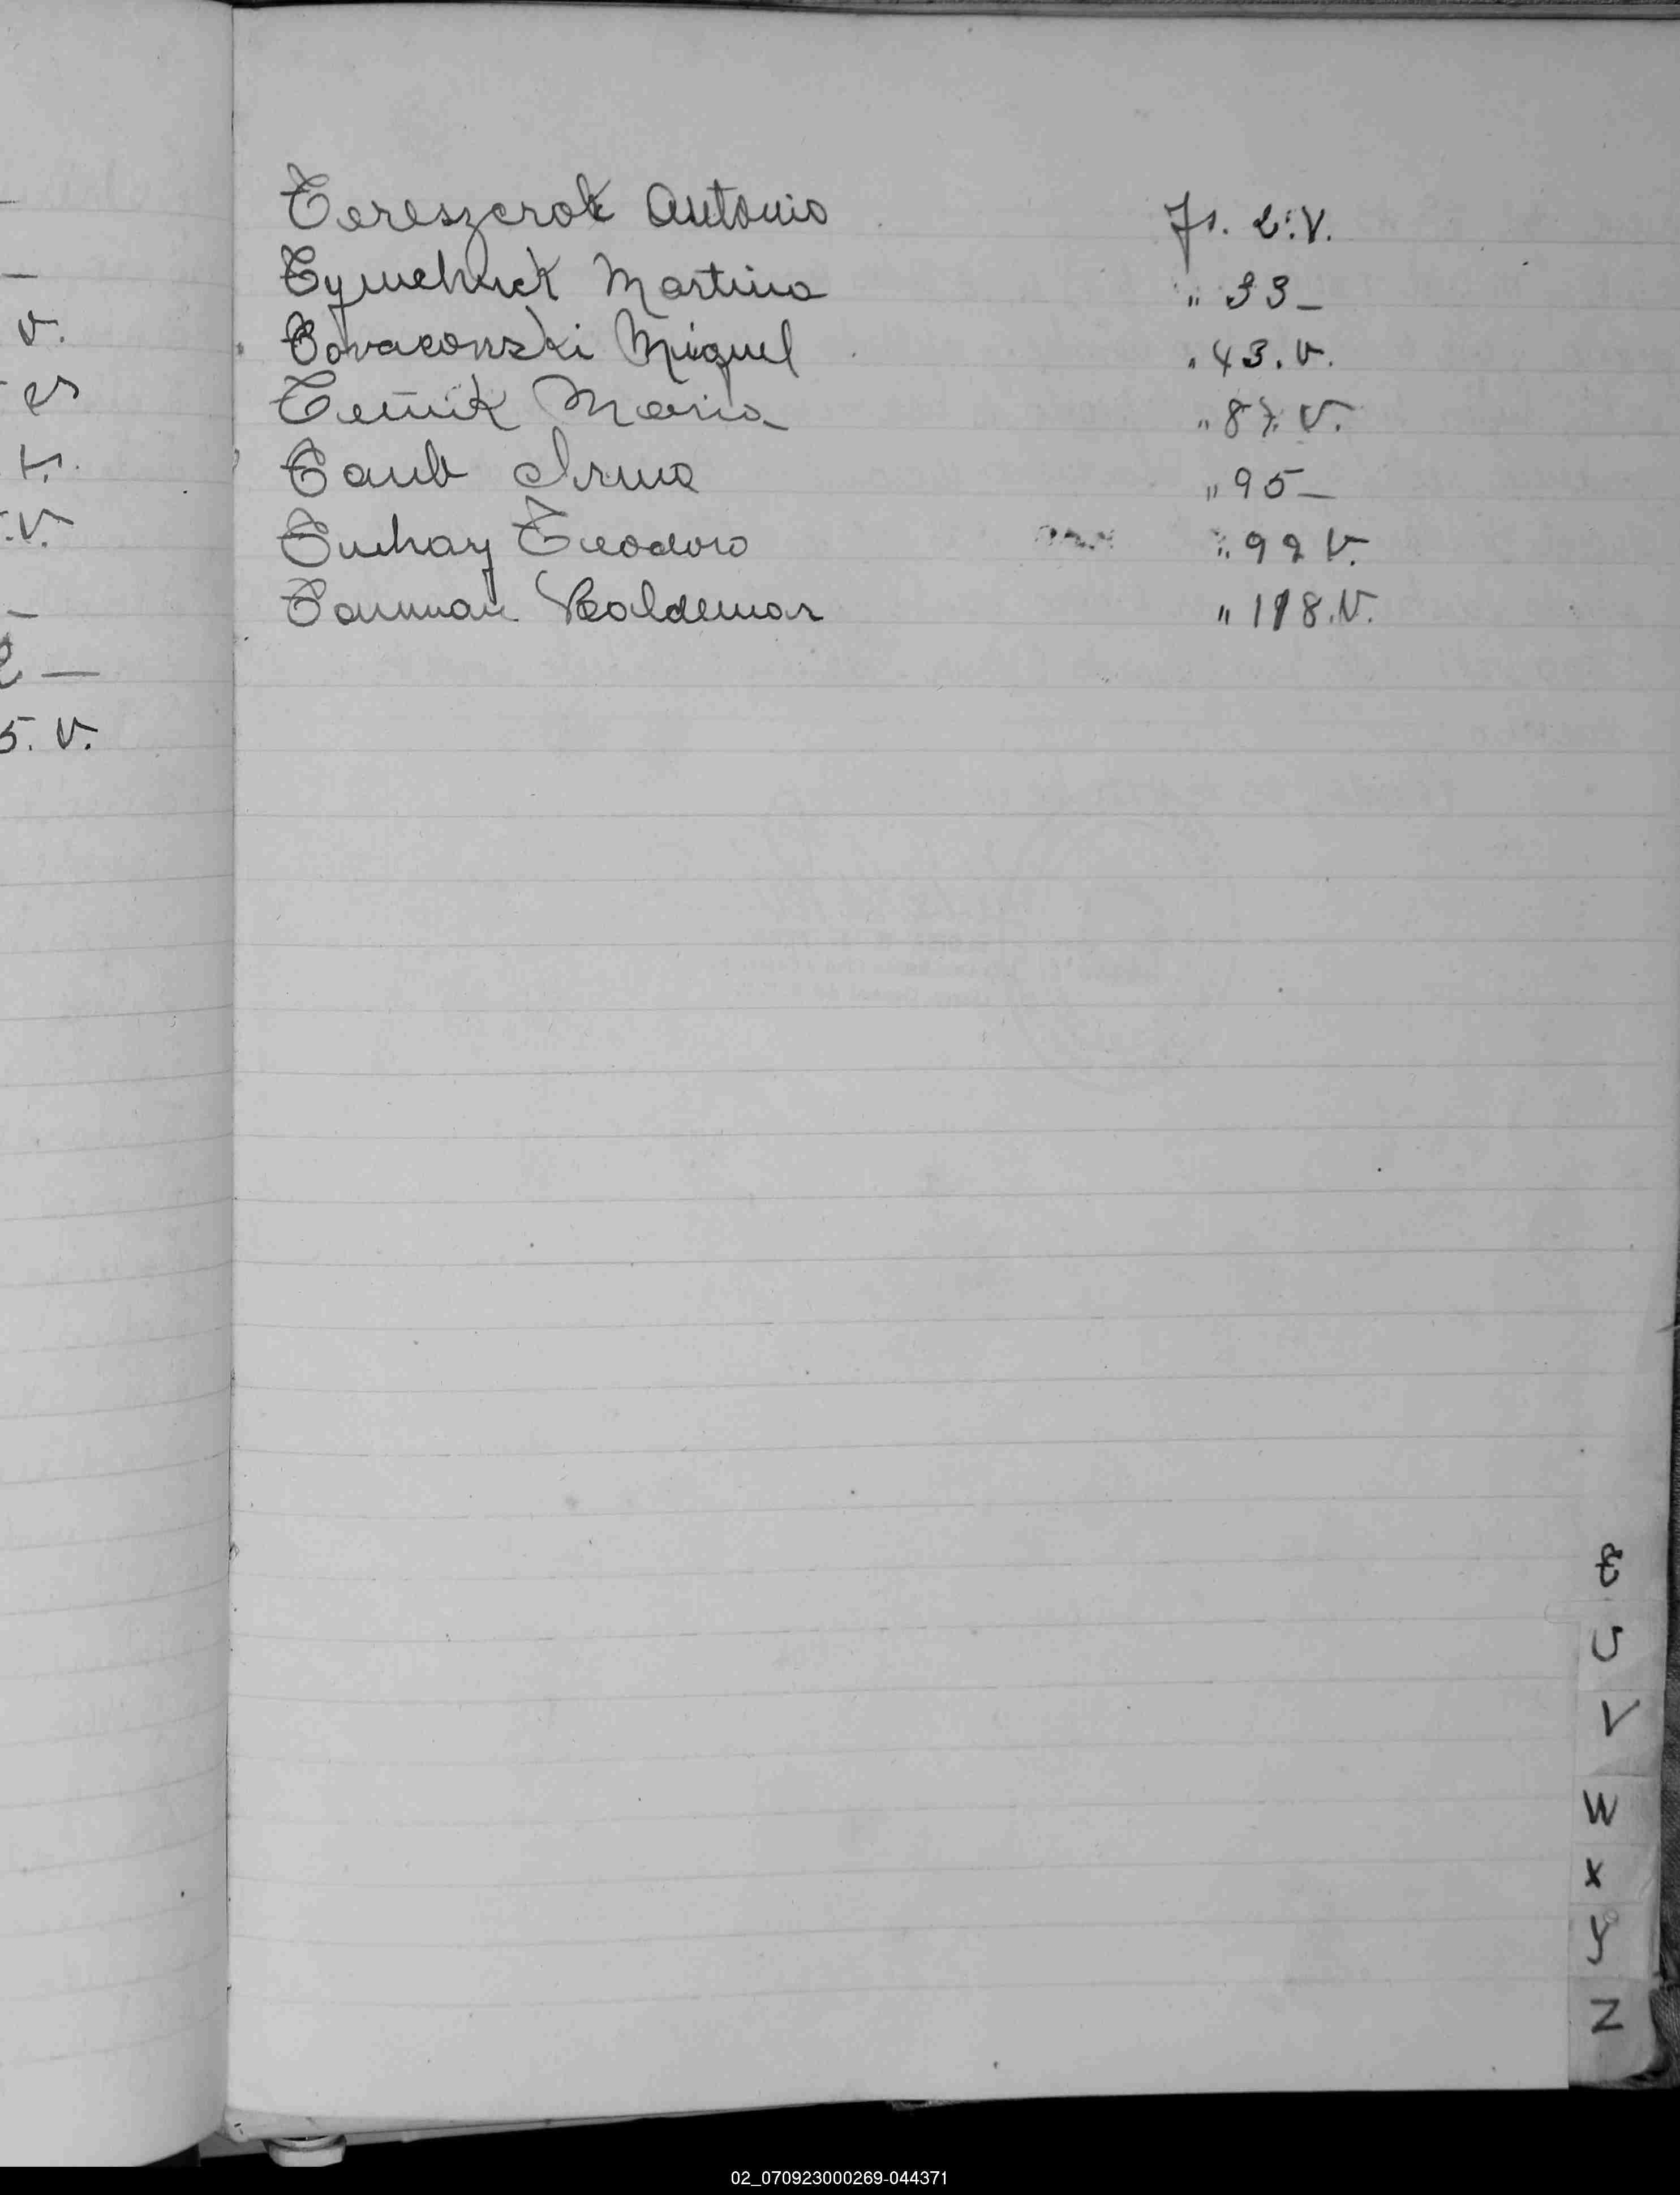 Tereszcrok Antonio Fs. 2.V.
Tymchuck Martina " 33 –
Tovaconski Miguel " 43. V.
Maria " 87. V.
Taub Irma " 95 –
Tuchay Teodoro " 99 V.
Tauman Valdemar " 118. V.
V.
V.
5. V.
T
U
V
W
X
Y
Z
02_070923000269-044371